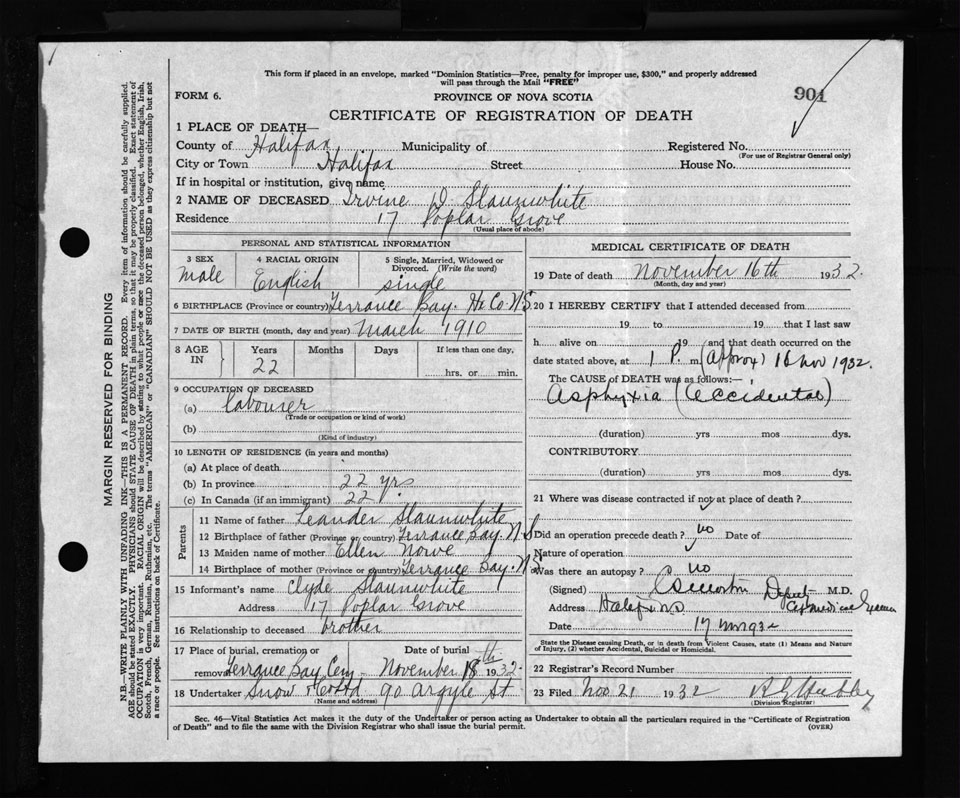 This form if placed in an envelope, marked "Dominion Statistics—Free, penalty for improper use, $300," and properly addressed
will pass through the Mail "FREE"
FORM 6.
PROVINCE OF NOVA SCOTIA
901
CERTIFICATE OF REGISTRATION OF DEATH
1 PLACE OF DEATH—
County of Halifax Municipality of Registered No.
(For use of Registrar General only)
City or Town Halifax Street House No.
If in hospital or institution, give name
2 NAME OF DECEASED Irvine D Slaunwhite
Residence 17 Poplar Grove
(Usual place of abode)
PERSONAL AND STATISTICAL INFORMATION
3 SEX 4 RACIAL ORIGIN 5 Single, Married, Widowed or
Divorced. (Write the word)
male English single
6 BIRTHPLACE (Province or country) Terrance Bay. Hx Co. N.S.
7 DATE OF BIRTH (month, day and year) March 1910
8 AGE IN Years Months Days If less than one day,
22 hrs. or min.
9 OCCUPATION OF DECEASED
(a) labourer
(Trade or occupation or kind of work)
(b)
(Kind of industry)
10 LENGTH OF RESIDENCE (in years and months)
(a) At place of death
(b) In province 22 yrs
(c) In Canada (if an immigrant) 22
Parents
11 Name of father Leander Slaunwhite
12 Birthplace of father (Province or country) Terrance Bay. N.S
13 Maiden name of mother Ellen Nowe
14 Birthplace of mother (Province or country) Terrance Bay. N.S.
15 Informant's name Clyde Slaunwhite
Address 17 Poplar Grove
16 Relationship to deceased brother
17 Place of burial, cremation or Date of burial
removal Terrance Bay Cem. November 18th 1932
18 Undertaker Snow & Co Ltd 90 Argyle St
(Name and address)
MEDICAL CERTIFICATE OF DEATH
19 Date of death November 16th 1932.
(Month, day and year)
20 I HEREBY CERTIFY that I attended deceased from
19 to 19 that I last saw
h alive on 19 and that death occurred on the
date stated above, at 1 P. m. (approx) 16 Nov 1932.
The CAUSE OF DEATH was as follows:—
Asphyxia (accidental)
(duration) yrs mos dys.
CONTRIBUTORY
(duration) yrs mos dys.
21 Where was disease contracted if not at place of death?
Did an operation precede death? no Date of
Nature of operation
Was there an autopsy? no
(Signed) Deputy M.D.
Address Halifax N.S. Medical Examiner
Date 17 Nov 1932
State the Disease causing Death, or in death from Violent Causes, state (1) Means and Nature
of Injury, (2) whether Accidental, Suicidal or Homicidal.
22 Registrar's Record Number
23 Filed Nov 21 1932
(Division Registrar)
Sec. 46—Vital Statistics Act makes it the duty of the Undertaker or person acting as Undertaker to obtain all the particulars required in the "Certificate of Registration
of Death" and to file the same with the Division Registrar who shall issue the burial permit.
(OVER)
MARGIN RESERVED FOR BINDING
N.B.—WRITE PLAINLY WITH UNFADING INK—THIS IS A PERMANENT RECORD. Every item of information should be carefully supplied.
AGE should be stated EXACTLY. PHYSICIANS should STATE CAUSE OF DEATH in plain terms, so that it may be properly classified. Exact statement of
OCCUPATION is very important. RACIAL ORIGIN will be described by stating to what people or race the deceased person belonged, whether English, Irish,
Scotch, French, German, Russian, Ruthenian, etc. The terms "AMERICAN" or "CANADIAN" SHOULD NOT BE USED as they express citizenship but not
a race or people. See instructions on back of Certificate.